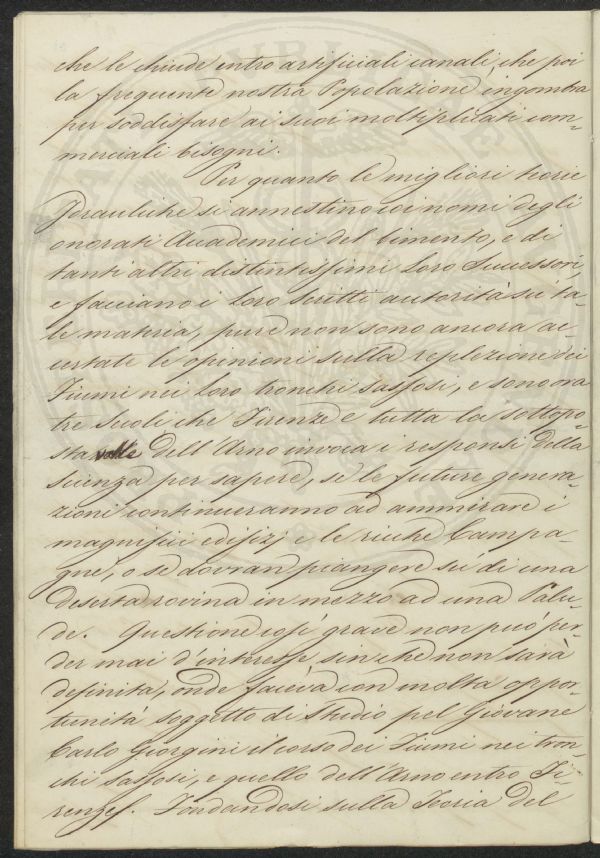 che le chiude entro artificiali canali, che poi
la frequente nostra Popolazione ingombra
per soddisfare ai suoi moltiplicati com-
merciali bisogni.
Per quanto le migliori teorie
Idrauliche si annestino coi nomi degli
onorati Accademici del Cimento, e di
tanti altri distintissimi Loro Successori
e facciano i Loro scritti autorità su ta-
le materia, pure non sono ancora ac-
certate le opinioni sulla replezione dei
Fiumi nei Loro tronchi sassosi, e sono ora
tre Secoli che Firenze e tutta la sottopo-
sta valle dell'Arno invoca i responsi della
scienza per sapere, se le future genera-
zioni continueranno ad ammirare i
magnifici edifizj e le ricche Campa-
gne, o se dovran piangere su di una
deserta rovina in mezzo ad una Palu-
de. Questione così grave non può per-
der mai d'interesse sin che non sarà
definita, onde faceva con molta oppor-
tunità soggetto di Studio pel Giovane
Carlo Giorgini il corso dei Fiumi nei tron-
chi sassosi, e quello dell'Arno entro Fi-
renze. Fondandosi sulla Teoria del